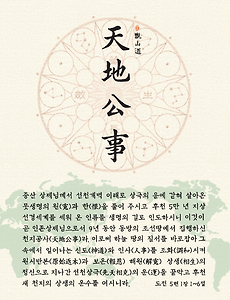 甑山道
天地公事
증산 상제님께서 선천개벽 이래로 상극의 운에 갇혀 살아온
뭇생명의 원(寃)과 한(恨)을 풀어 주시고 후천 5만 년 지상
선경세계를 세워 온 인류를 생명의 길로 인도하시니 이것이
곧 인존상제님으로서 9년 동안 동방의 조선땅에서 집행하신
천지공사(天地公事)라. 이로써 하늘 땅의 질서를 바로잡아 그
속에서 일어나는 신도(神道)와 인사(人事)를 조화(調和)시켜
원시반본(原始返本)과 보은(報恩) 해원(解寃) 상생(相生)의
정신으로 지나간 선천상극(先天相克)의 운(運)을 끝막고 후천
새 천지의 상생의 운수를 여시니라.
도전 5편 1장 1~6절